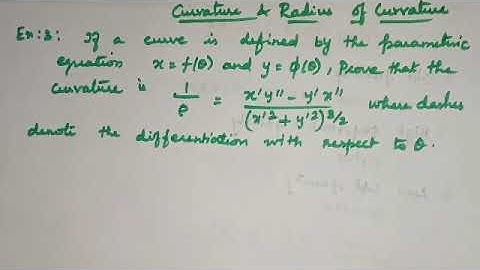 Curvature & Radius of Curvature
Ex:3: If a curve is defined by the parametric
equation x = f(θ) and y = ϕ(θ), Prove that the
curvature is 1/ρ = (x'y'' − y'x'')/(x'² + y'²)^3/2 where dashes
denote the differentiation with respect to θ.